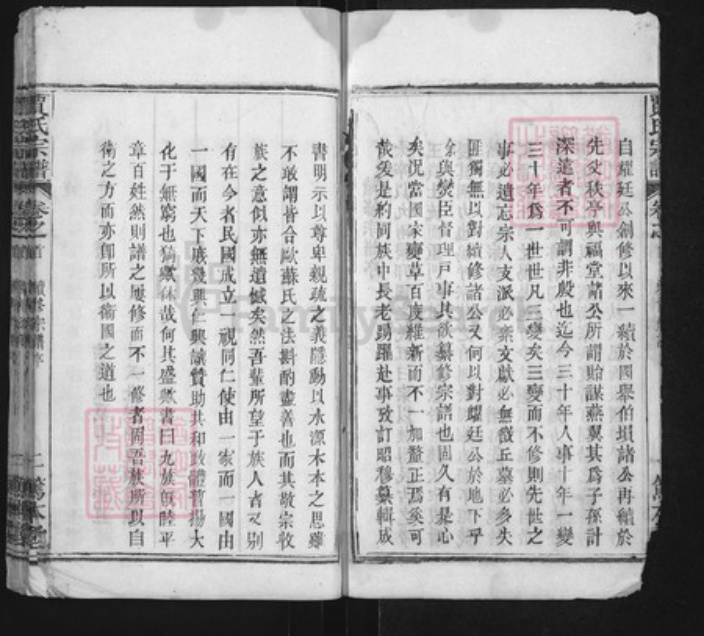 自耀廷公創修以來一續於四舉伯塤諸公再續於
先父秩亭與福堂諸公所謂貽謀燕翼其爲子孫計
深遠者不可謂非殷也迄今三十年人事十年一變
三十年爲一世世凡三變矣三變而不修則先世之
事必遺忘宗人支派必紊文獻必無徵丘墓必多失
匪獨無以對續修諸公又何以對耀廷公於地下乎
余與燮臣督理戸事其欲纂修宗譜也固久有是心
矣况當國家變革百度維新而不一加釐正焉奚可
哉爰是約同族中長老踴躍赴事攷訂昭穆纂輯成
書明示以尊卑親疏之義隱動以水源木本之思雖
不敢謂皆合歐蘇氏之法斟酌盡善也而其敬宗收
族之意似亦無遺憾矣然吾輩所望于族人者又别
有在今者民國成立一視同仁使由一家而一國由
一國而天下庶幾興仁興讓贊助共和政體發揚大
化于無窮也猗歟休哉何其盛歟書曰九族旣睦平
章百姓然則譜之屢修而不一修者固吾族所以自
衛之方而亦卽所以衛國之道也
賈氏宗譜
卷之首
續修宗譜序
二
篤本堂